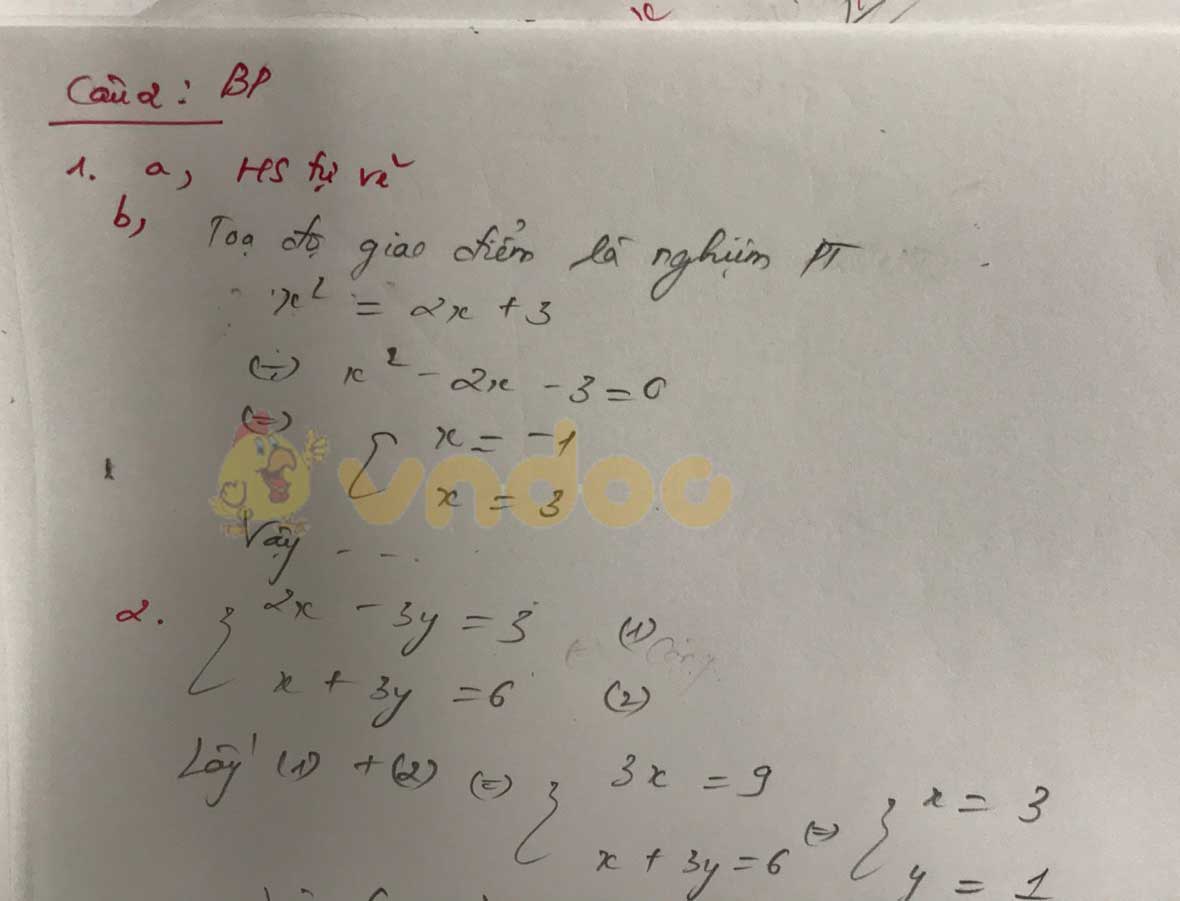 Câu 2: BP
1. a, HS tự vẽ
b,
Toạ độ giao điểm là nghiệm PT
x² = 2x + 3
(=) x² - 2x - 3 = 0
(=) { x = -1
x = 3
vndoc
Vậy - - .
2. { 2x - 3y = 3 (1)
x + 3y = 6 (2)
Lấy (1) + (2) (=) { 3x = 9
x + 3y = 6 (=) { x = 3
y = 1